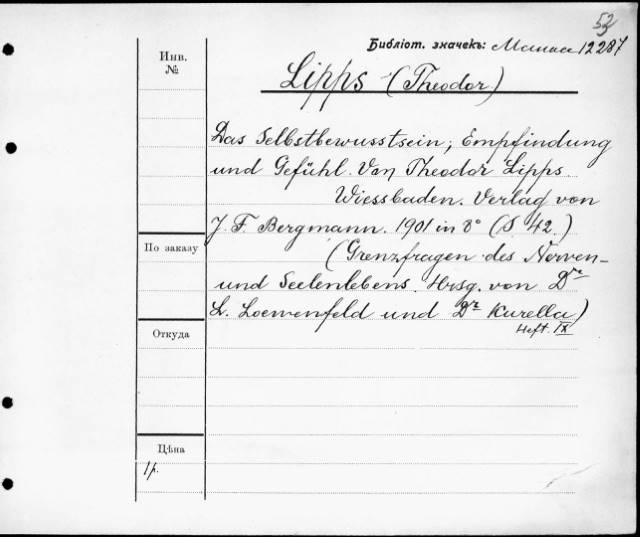 52
Библіот. значекъ: 12287
Инв.
№
Lipps (Theodor)
Das Selbstbewusstsein; Empfindung
und Gefühl. Von Theodor Lipps.
Wiessbaden. Verlag von
J. F. Bergmann. 1901 in 8° (S. 42.)
По заказу
(Grenzfragen des Nerven-
und Seelenlebens. Hrsg. von Dr
L. Loewenfeld und Dr Kurella)
Heft. IX
Откуда
Цѣна
1р.